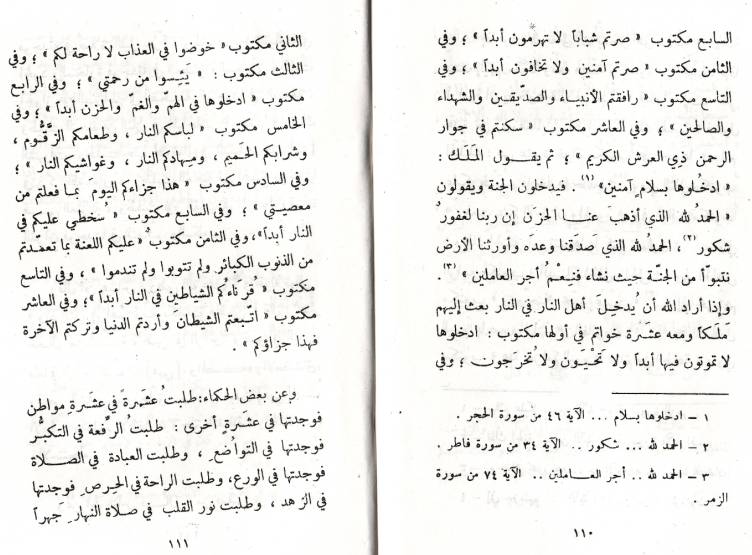 السابع مكتوب « صرتم شباباً لا تهرمون أبداً » ؛ وفي
الثامن مكتوب « صرتم آمنين ولا تخافون أبداً » ؛ وفي
التاسع مكتوب « رافقتم الأنبياء والصدّيقين والشهداء
والصالحين » ؛ وفي العاشر مكتوب « سكنتم في جوار
الرحمن ذي العرش الكريم » ؛ ثم يقول المَلَك :
« ادخُلوها بسلام آمنين» (١) . فيدخلون الجنة ويقولون
« الحمدُ لله الذي أذهبَ عنا الحزَن إن ربنا لغفورٌ
شكور (٢) ، الحمدُ لله الذي صَدَقنا وعدَه وأورثنا الأرضَ
نتبوّأ من الجنّة حيث نشاء فنِعْمَ أجر العاملين » (٣) .
وإذا أراد الله أن يُدخِلَ أهل النار في النار بعث إليهم
مَلَكاً ومعه عشَرة خواتم في أولها مكتوب : ادخلوها
لا تموتون فيها أبداً ولا تَحْيَون ولا تُخرَجون ؛ وفي
١ – ادخلوها بسلام ... الآية ٤٦ من سورة الحجر .
٢ – الحمد لله ... شكور .. الآية ٣٤ من سورة فاطر .
٣ – الحمد لله .. أجر العاملين .. الآية ٧٤ من سورة
الزمر .
١١٠
الثاني مكتوب « خوضوا في العذاب لا راحة لكم » ؛ وفي
الثالث مكتوب : « يَئِسوا من رحمتي » ؛ وفي الرابع
مكتوب « ادخلوها في الهمّ والغمّ والحزن أبداً » ؛ وفي
الخامس مكتوب « لباسكم النار ، وطعامكم الزَّقُّوم ،
وشرابكم الحَميم ، ومِهادكم النار ، وغواشيكم النار » ؛
وفي السادس مكتوب « هذا جزاءكم اليومَ بما فعلتم من
معصيتي » ؛ وفي السابع مكتوب « سخطي عليكم في
النار أبداً»، وفي الثامن مكتوب «عليكم اللعنة بما تعمّدتم
من الذنوب الكبائر ولم تتوبوا ولم تندموا » ، وفي التاسع
مكتوب « قُرَناءكم الشياطين في النار أبداً »؛ وفي العاشر
مكتوب « اتّبعتم الشيطانَ وأردتم الدنيا وتركتم الآخرة
فهذا جزاؤكم » .
وعن بعض الحكماء: طلبتُ عشَرةً في عشَرةِ مواطن
فوجدتها في عشَرةٍ أخرى : طلبتُ الرفعة في التكبُّر
فوجدتها في التواضُع ، وطلبت العبادة في الصلاة
فوجدتها في الورع، وطلبت الراحة في الحِرص فوجدتها
في الزهد ، وطلبت نور القلب في صلاة النهارِ جَهراً
١١١